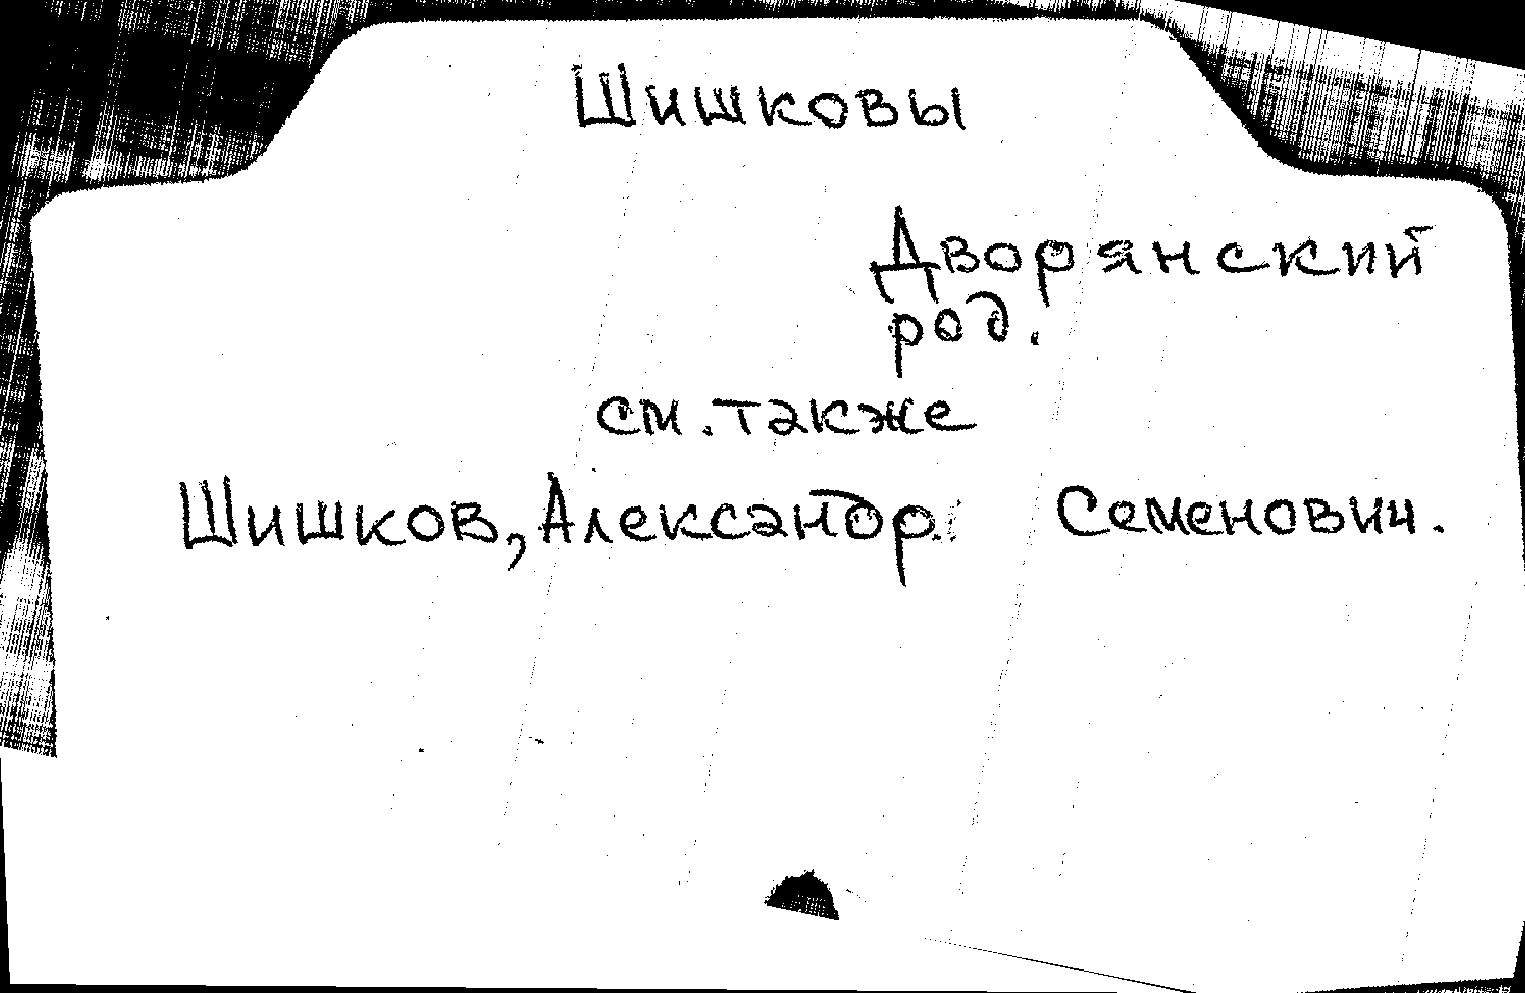 Шишковы
Дворянский
род.
см. также
Шишков, Александр. Семенович.